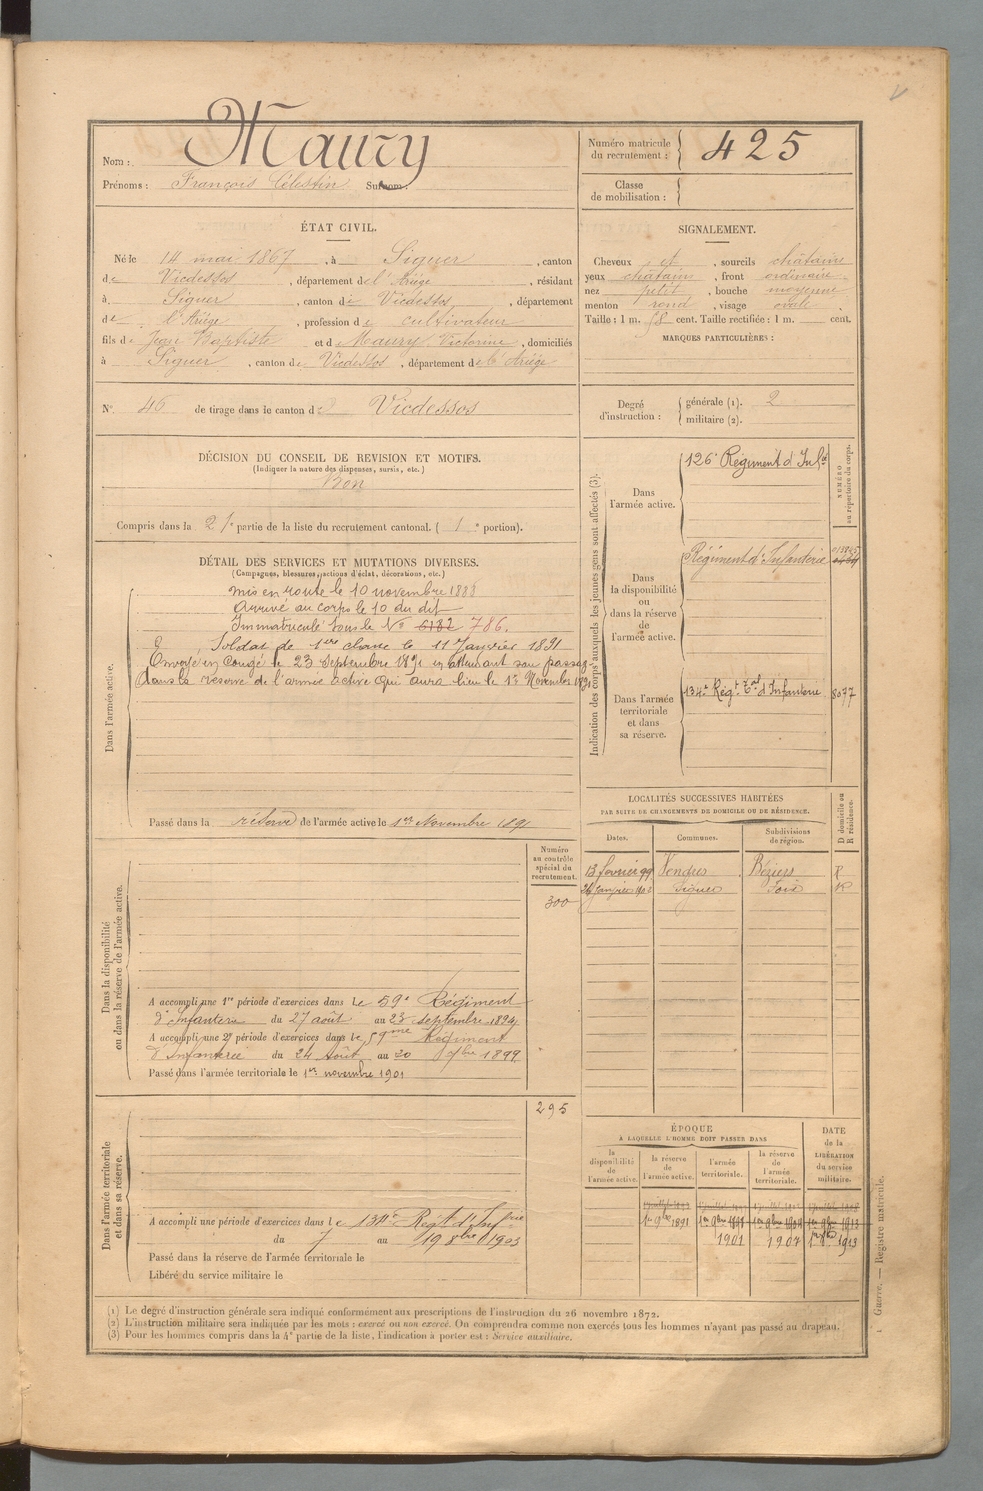 Nom : Maury
Prénoms : François Célestin Surnom :
Numéro matricule du recrutement : 425
Classe de mobilisation :
ÉTAT CIVIL.
Né le 14 mai 1867, à Siguer, canton
de Vicdessos, département de l'Ariège, résidant
à Siguer, canton de Vicdessos, département
de l'Ariège, profession de cultivateur
fils de Jean Baptiste et de Maury Victorine, domiciliés
à Siguer, canton de Vicdessos, département de l'Ariége
N° 46 de tirage dans le canton de Vicdessos
SIGNALEMENT.
Cheveux et, sourcils châtains
yeux châtains, front ordinaire
nez petit, bouche moyenne
menton rond, visage ovale
Taille : 1 m. 58 cent. Taille rectifiée : 1 m. cent.
MARQUES PARTICULIÈRES :
Degré d'instruction : générale (1). 2
militaire (2).
DÉCISION DU CONSEIL DE REVISION ET MOTIFS.
(Indiquer la nature des dispenses, sursis, etc.)
Bon
Compris dans la 2e partie de la liste du recrutement cantonal. ( 1e portion).
DÉTAIL DES SERVICES ET MUTATIONS DIVERSES.
(Campagnes, blessures, actions d'éclat, décorations, etc.)
Dans l'armée active.
mis en route le 10 novembre 1888
Arrivé au corps le 10 du dit
Immatriculé sous le No 6182 786.
Soldat de 1ere classe le 11 Janvier 1891
Envoyé en Congé le 23 Septembre 1891 en attendant son passage
dans la réserve de l'armée active qui aura lieu le 1er Novembre 1891
Passé dans la réserve de l'armée active le 1er Novembre 1891
Indication des corps auxquels les jeunes gens sont affectés (3).
NUMÉRO au répertoire du corps.
Dans l'armée active.
126e Régiment d'Infie
Dans la disponibilité ou dans la réserve de l'armée active.
Régiment d'Infanterie
Dans l'armée territoriale et dans sa réserve.
134e Régt Tal d'Infanterie 8077
LOCALITÉS SUCCESSIVES HABITÉES
PAR SUITE DE CHANGEMENTS DE DOMICILE OU DE RÉSIDENCE.
D domicile ou R résidence.
Dates. Communes. Subdivisions de région.
13 fevrier 99 Vendres Béziers R
24 janvier 1902 Siguer Foix R
Dans la disponibilité ou dans la réserve de l'armée active.
Numéro au contrôle spécial du recrutement.
300
A accompli une 1re période d'exercices dans le 59e Régiment
d'Infanterie du 27 août au 23 septembre 1894
A accompli une 2e période d'exercices dans le 59me Régiment
d'Infanterie du 24 Août au 20 7bre 1899
Passé dans l'armée territoriale le 1er novembre 1901
Dans l'armée territoriale et dans sa réserve.
295
A accompli une période d'exercices dans le 134e Regt d'Infrie
du 7 au 19 8bre 1903
Passé dans la réserve de l'armée territoriale le
Libéré du service militaire le
ÉPOQUE
À LAQUELLE L'HOMME DOIT PASSER DANS
la disponibilité de l'armée active.
la réserve de l'armée active.
l'armée territoriale.
la réserve de l'armée territoriale.
DATE de la LIBÉRATION du service militaire.
1er 9bre 1891
1901 1907 1913
(1) Le degré d'instruction générale sera indiqué conformément aux prescriptions de l'instruction du 26 novembre 1872.
(2) L'instruction militaire sera indiquée par les mots : exercé ou non exercé. On comprendra comme non exercés tous les hommes n'ayant pas passé au drapeau.
(3) Pour les hommes compris dans la 4e partie de la liste, l'indication à porter est : Service auxiliaire.
Guerre. — Registre matricule.